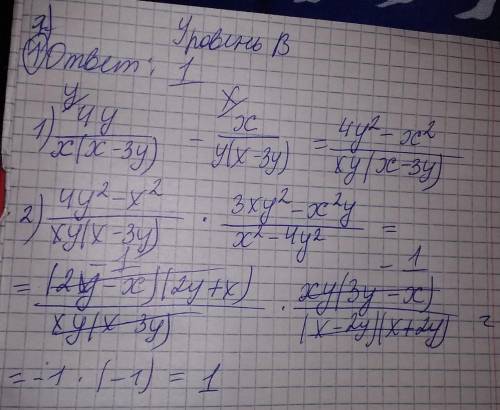 2) Уровень В
① Ответ: 1
1) 4y/x(x-3y) - x/y(x-3y) = 4y²-x²/xy(x-3y)
2) 4y²-x²/xy(x-3y) · 3xy²-x²y/x²-4y² =
= (2y-x)(2y+x)/xy(x-3y) · xy(3y-x)/(x-2y)(x+2y) =
= -1 · (-1) = 1